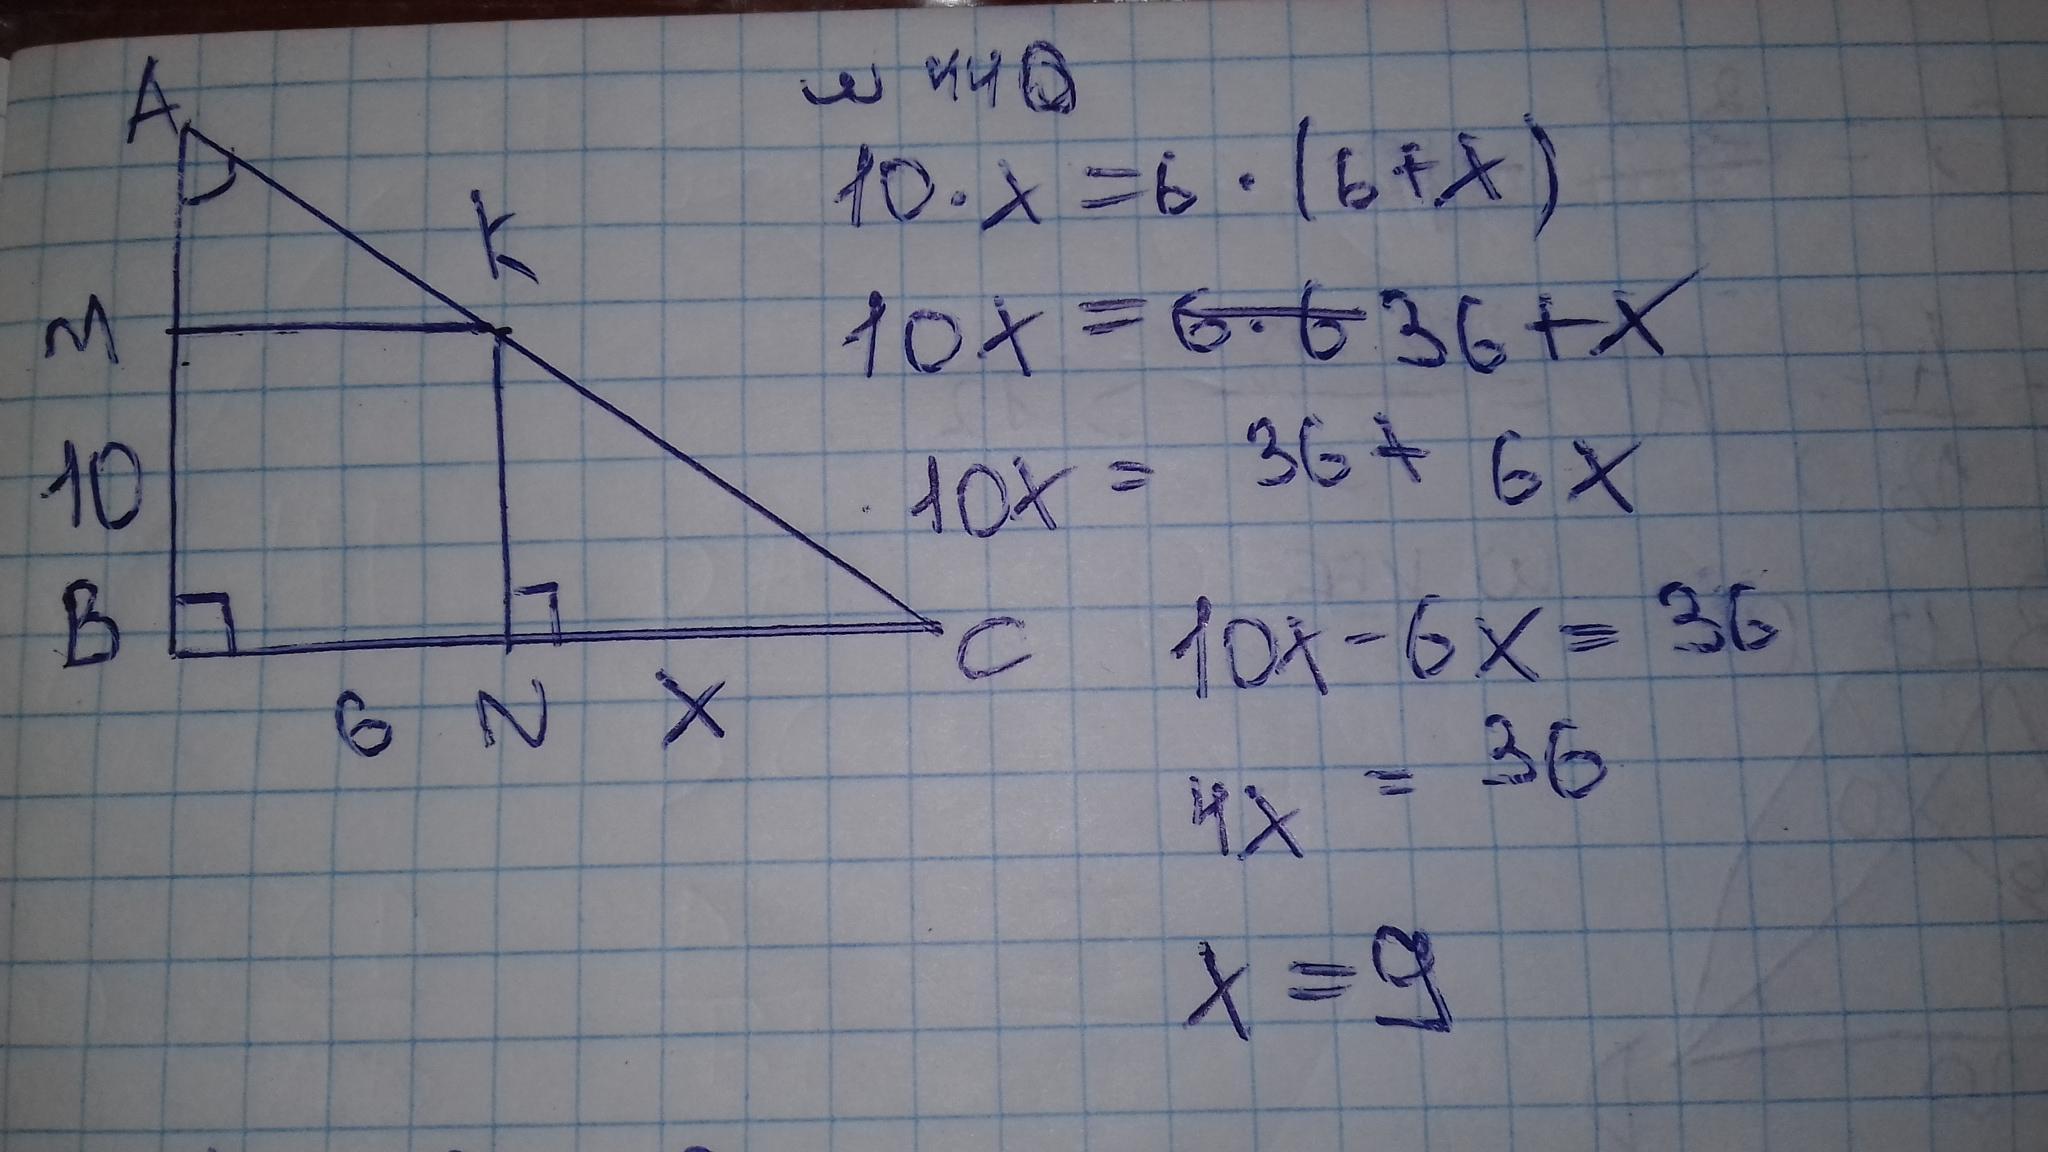 № 440
A
K
10·x=6·(6+x)
M
10x = 6·6 36+x
10
10x = 36+ 6x
B
C
10x-6x=36
6 N x
4x = 36
x=9